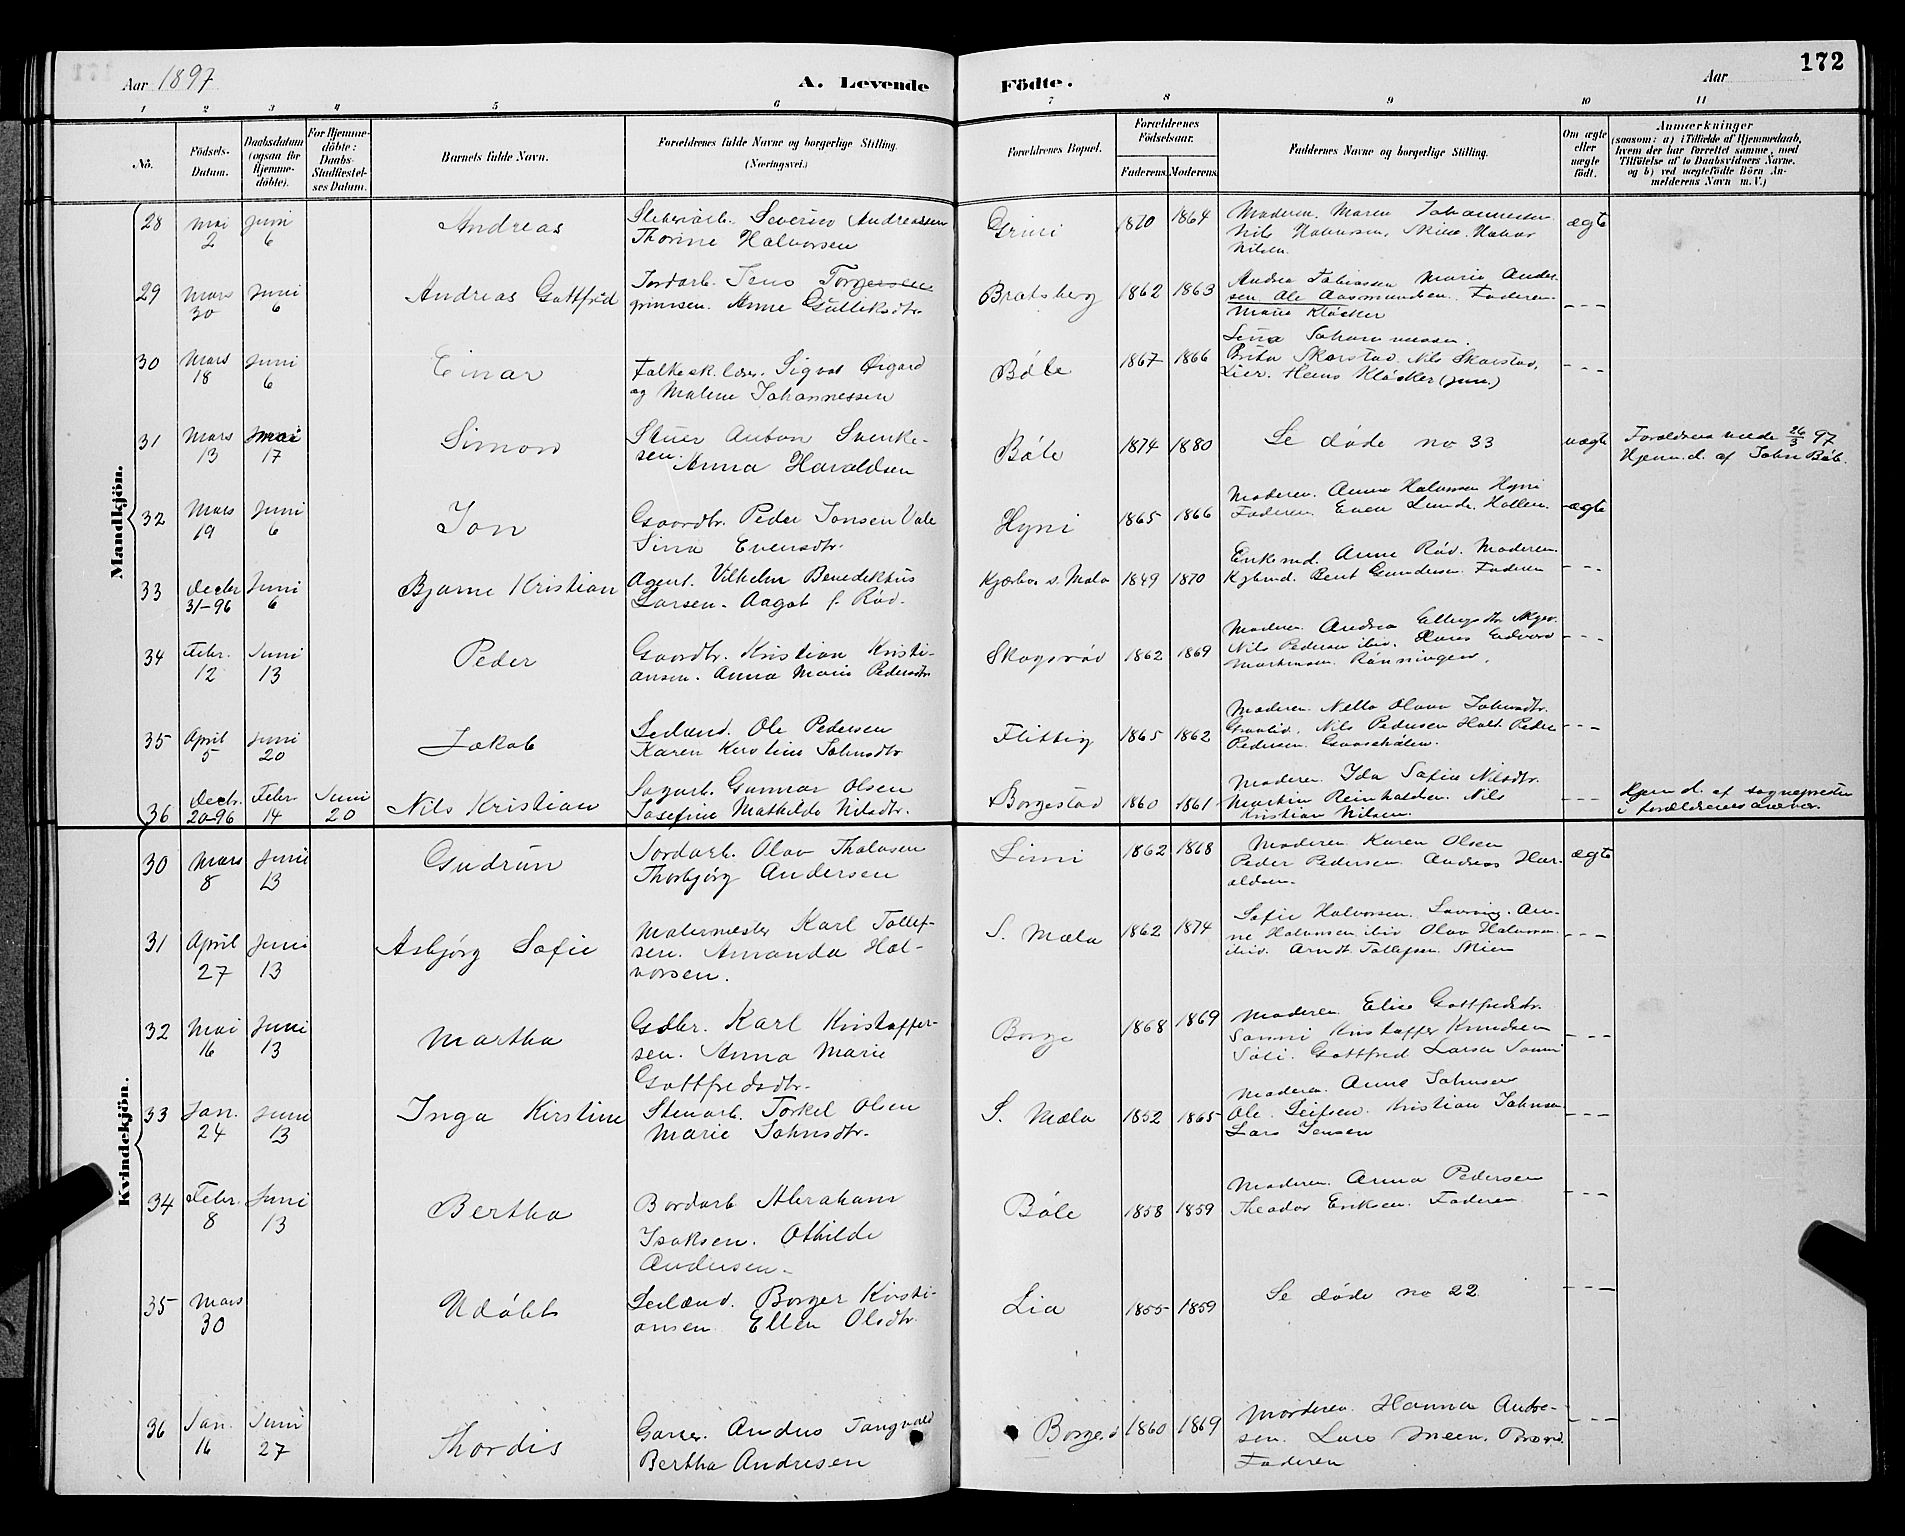 172
Aar 1897
A. Levende Födte.
Aar
1 2 3 4 5 6 7 8 9 10 11
No.
Födsels-
Datum.
Daabsdatum
(ogsaa for
Hjemme-
döbte).
For Hjemme-
döbte:
Daabs-
Stadfæstel-
ses Datum.
Barnets fulde Navn.
Forældrenes fulde Navne og borgerlige Stilling.
(Næringsvei.)
Forældrenes Bopæl.
Forældrenes
Födselsaar.
Faderens. Moderens.
Faddernes Navne og borgerlige Stilling.
Om ægte
eller
uægte
födt.
Anmærkninger
(saasom: a) i Tilfælde af Hjemmedaab,
hvem der har forrettet samme, med
Tilföielse af to Daabsvidners Navne,
og b) ved uægtefödte Börn An-
melderens Navn m. V.)
Mandkjön.
28 Mai 2 Juni 6 Andreas
Severin Andreassen
Thorine Halvorsen
Grini 1870 1864
Moderen. Maren Johannessen
Nils Halvorsen, Halvor
Nilsen.
ægte
29 Mars 30 Juni 6 Andreas Gottfred
Jordarb. Jens Torgersen
grimsen. Anne Gulliksdtr.
Bratsberg 1862 1863
Andrea Tobiassen Marie Ander-
sen. Ole Aasmundsen. Faderen
Marie Kløcker
- - -
30 Mars 18 Juni 6 Einar
Folkesk.lær. Sigvat Ørgard
og Malene Johannessen
Bøle 1867 1866
Lina Johannessen.
Brita Skarstad. Nils Skarstad,
Lier. Hans Kløcker (jun.)
- - -
31 Mars 13 Mai 17 Simon
Anton Svenke-
sen. Anna Haraldsen
Bøle 1874 1880
Se døde no 33
uægte
Forældrene viede 26/3 97
Hjem.d. af John Bøle.
32 Mars 19 Juni 6 Jon
Gaardbr. Peder Jonsen Vale
Sina Evensdtr.
Hyni 1865 1866
Moderen. Anna Halvorsen Hyni
Faderen. Even Lunde. Hollen.
ægte
33 Decbr 31-96 Juni 6 Bjarne Kristian
Agent. Vilhelm Benediktus
Larsen. Aagot f. Rød.
Kjærbo s. Mæla 1849 1870
Enkemd. Anne Rød. Moderen.
Bent Gundersen. Faderen
- - -
34 Febr. 12 Juni 13 Peder
Gaardbr. Kristian Kristi-
ansen. Anna Marie Pedersdtr.
Skogsrød 1862 1869
Moderen. Andrea
Nils Pedersen ibid. Hans Edvard
Martinsen. Rønningen.
- - -
35 April 5 Juni 20 Jakob
Leiland. Ole Pedersen
Karen Kirstine Johnsdtr
Flittig 1865 1862
Moderen. Olava Johnsdtr.
Nils Pedersen Holt. Peder
Pedersen.
- - -
36 Decbr. 20-96 Febr 14 Juni 20 Nils Kristian
Sagarb. Gunnar Olsen
Josefine Mathilde Nilsdtr.
Borgestad 1860 1861
Moderen. Ida Sofie Nilsdtr.
Martin Reinholdsen. Nils
Kristian Nilsen.
- - -
Hjem d. af sognepresten
i forældrenes nærvær.
Kvindekjön.
30 Mars 8 Juni 13 Gudrun
Jordarb. Olav Tholvsen
Thorbjørg Andersen
Limi 1862 1868
Moderen. Karen Olsen
Peder Pedersen. Andreas Har-
aldsen.
ægte
31 April 27 Juni 13 Asbjørg Sofie
Malermester Karl Tollef-
sen. Amanda Hal-
vorsen.
S. Mæla 1862 1874
Sofie Halvorsen. An-
ne Halvorsen ibid Olav Halvorsen
ibid. Arndt Tollefsen. Mæen
- - -
32 Mai 16 Juni 13 Martha
Gdbr. Karl Kristoffer-
sen. Anna Marie
Gottfredsdtr.
Borge 1868 1869
Moderen. Elise Gottfredsdtr.
Sanni Kristoffer Knudsen
Søli. Gottfred Larsen Sanni
- - -
33 Jan. 24 Juni 13 Inga Kirstine
Stenarb. Torkel Olsen
Marie Johnsdtr.
S. Mæla 1852 1865
Moderen. Anne Johnsen
Ole Leifsen. Kristian Johnsen
Lars Jensen
- - -
34 Febr. 8 Juni 13 Bertha
Bordarb Abraham
Isaksen. Othilde
Andersen.
Bøle 1858 1859
Moderen. Anna Pedersen
Theodor Eriksen. Faderen
- - -
35 Mars 30 Udøbt
Leilænd. Borger Kristi-
ansen Ellen Olsdtr.
Lia 1855 1859
Se døde no 22
- - -
36 Jan. 16 Juni 27 Thordis
Garver. Anders Tangvald
Bertha Andresen
Borge.. 1860 1869
Moderen. Hanna Andre-
sen. Lars Meen.
Faderen
- - -